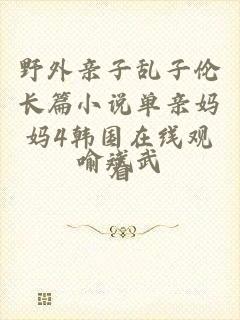 野外亲子乱子伦
长篇小说单亲妈
妈4韩国在线观
看
喻琰武